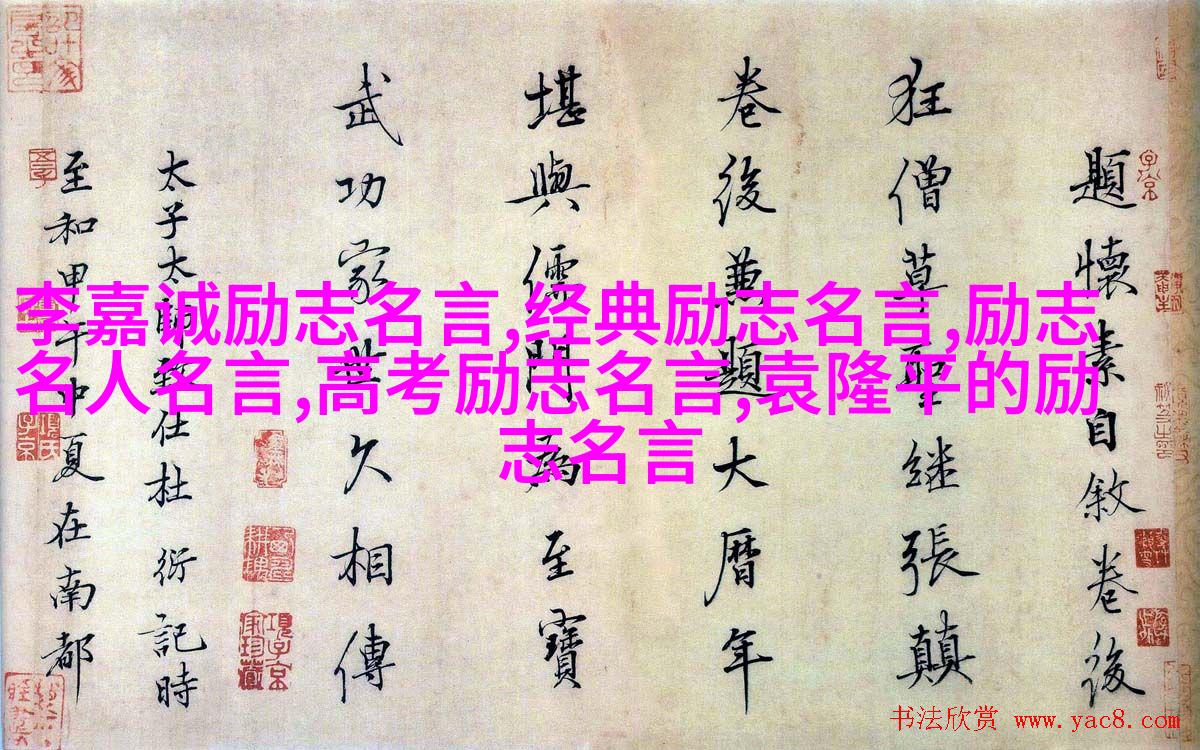 題懷素自敘卷後
狂僧草聖継張顛
卷後兼題大曆年
堪與儒門為至寶
武功家世久相傳
太子太師致仕杜 衍記時
至和甲午中夏在南都
李嘉诚励志名言,经典励志名言,励志
名人名言,高考励志名言,袁隆平的励
志名言
书法欣赏 www.yac8.com